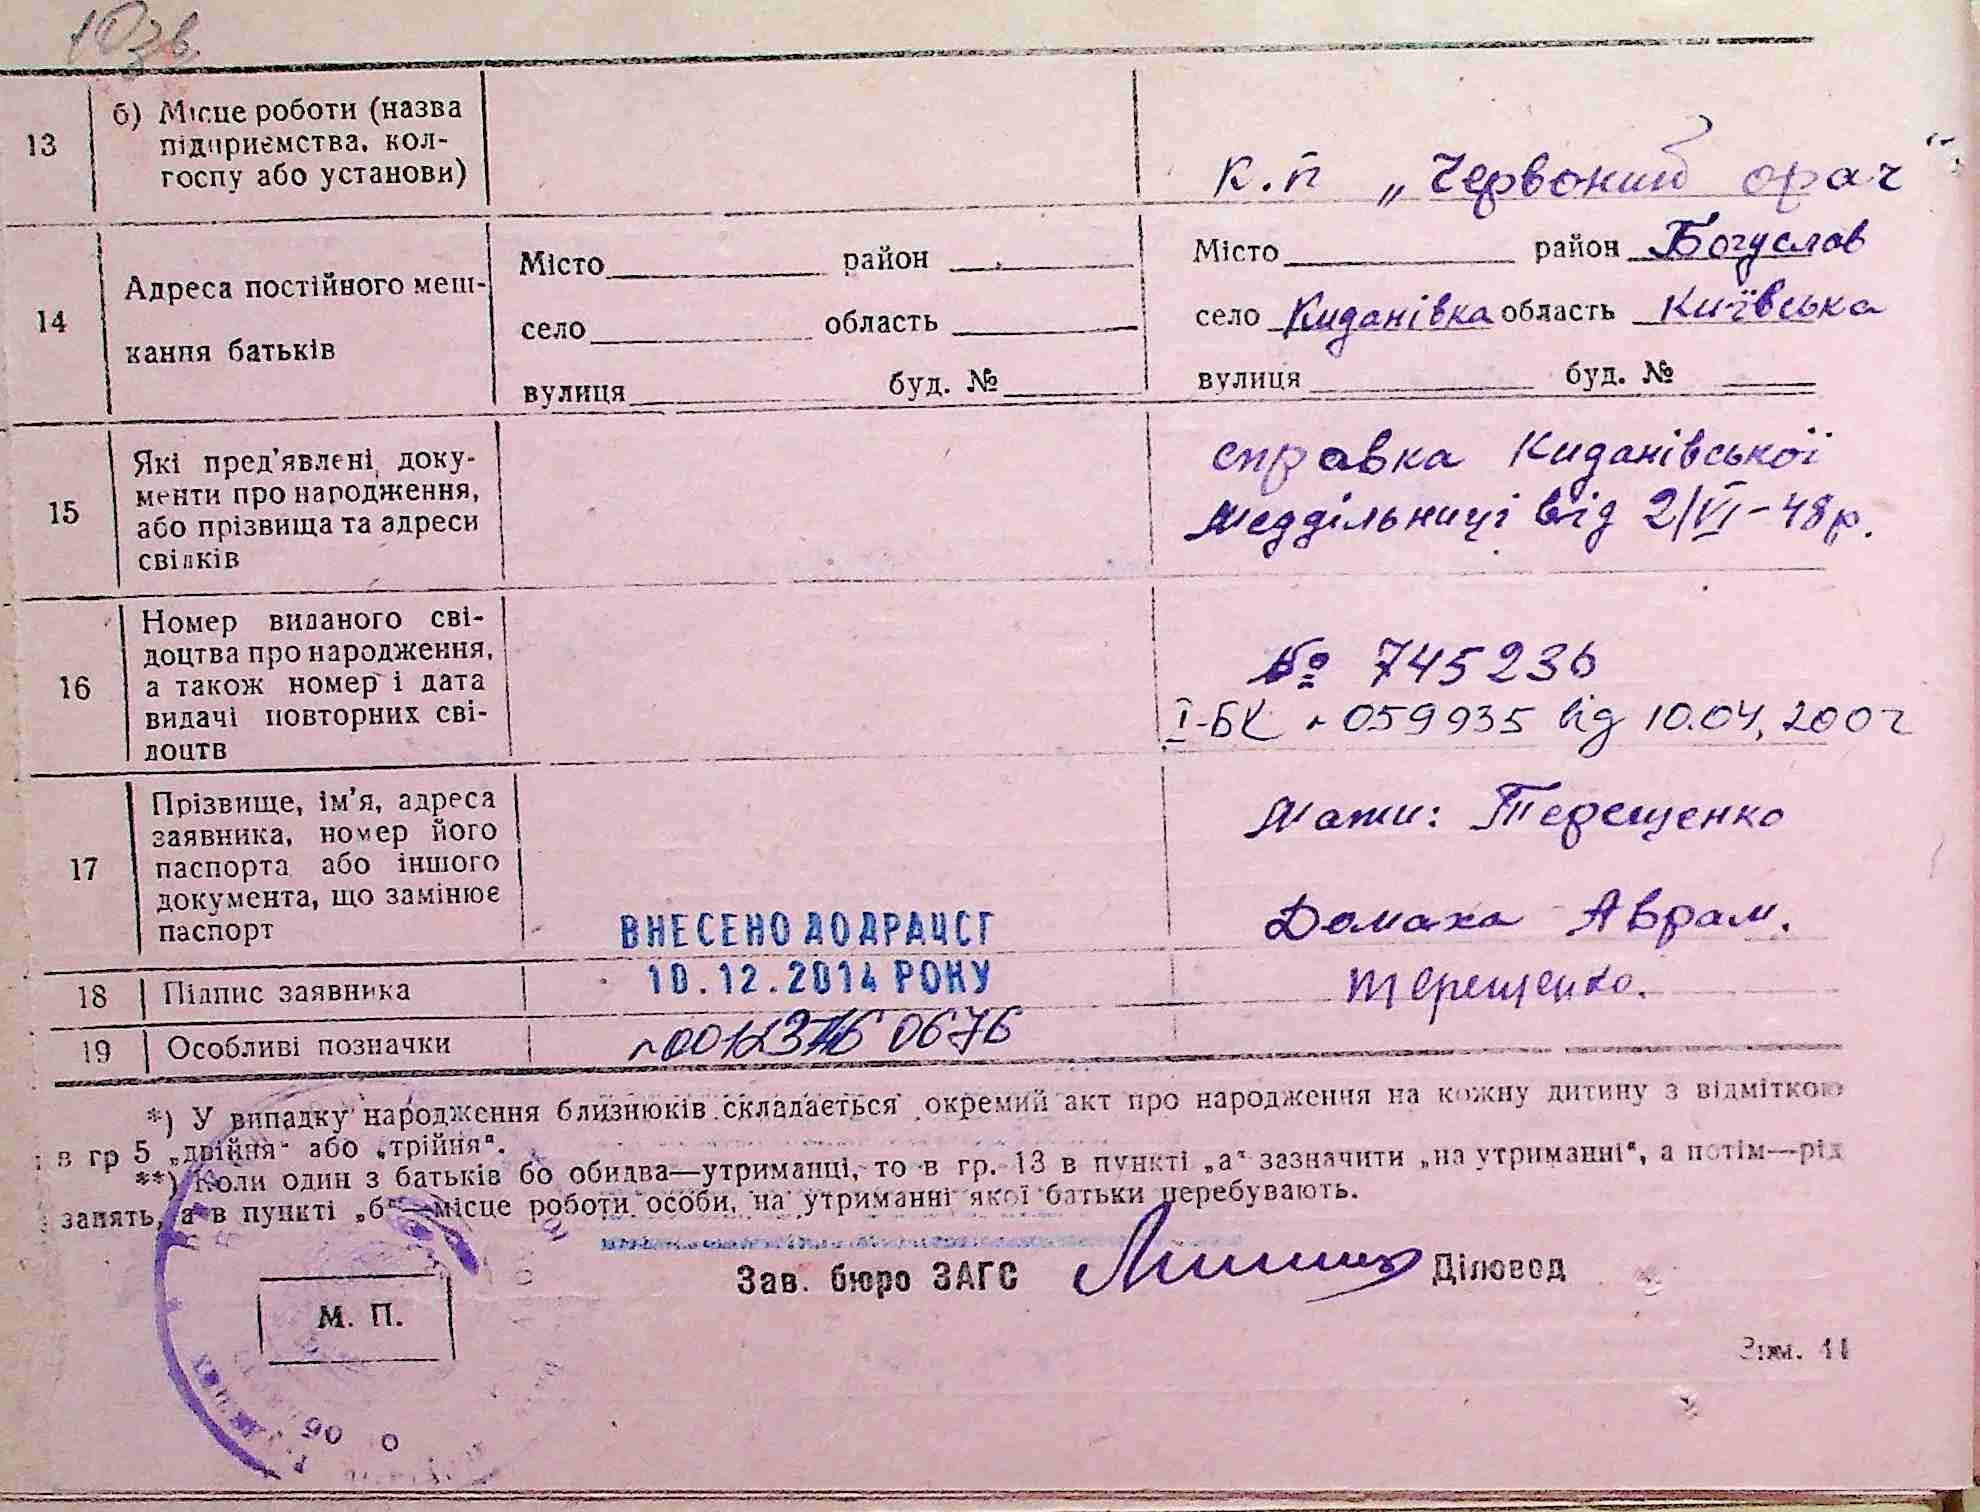 10зв.
13
б) Місце роботи (назва
підприємства, кол-
госпу або установи)
К.п „Червоний орач“
14
Адреса постійного меш-
кання батьків
Місто район
село область
вулиця буд. №
Місто район Богуслав
село Киданівка область Київська
вулиця буд. №
15
Які пред'явлені доку-
менти про народження,
або прізвища та адреси
свідків
справка Киданівської
меддільниці від 2/VI-48р.
16
Номер виданого сві-
доцтва про народження,
а також номер і дата
видачі повторних сві-
доцтв
№ 745236
I-БК 059935 від 10.04.2007
17
Прізвище, ім'я, адреса
заявника, номер його
паспорта або іншого
документа, що замінює
паспорт
Мати: Терещенко
Домаха Аврам.
ВНЕСЕНО ДО ДРАЦСГ
10.12.2014 РОКУ
18
Підпис заявника
Терещенко.
19
Особливі позначки
0676
*) У випадку народження близнюків складається окремий акт про народження на кожну дитину з відміткою
в гр 5 „двійня“ або „трійня“.
**) Коли один з батьків бо обидва—утриманці, то в гр. 13 в пункті „а“ зазначити „на утриманні“, а потім—рід
занять, а в пункті „б“—місце роботи особи, на утриманні якої батьки перебувають.
Зав. бюро ЗАГС Діловод
М. П.
Зам. 11